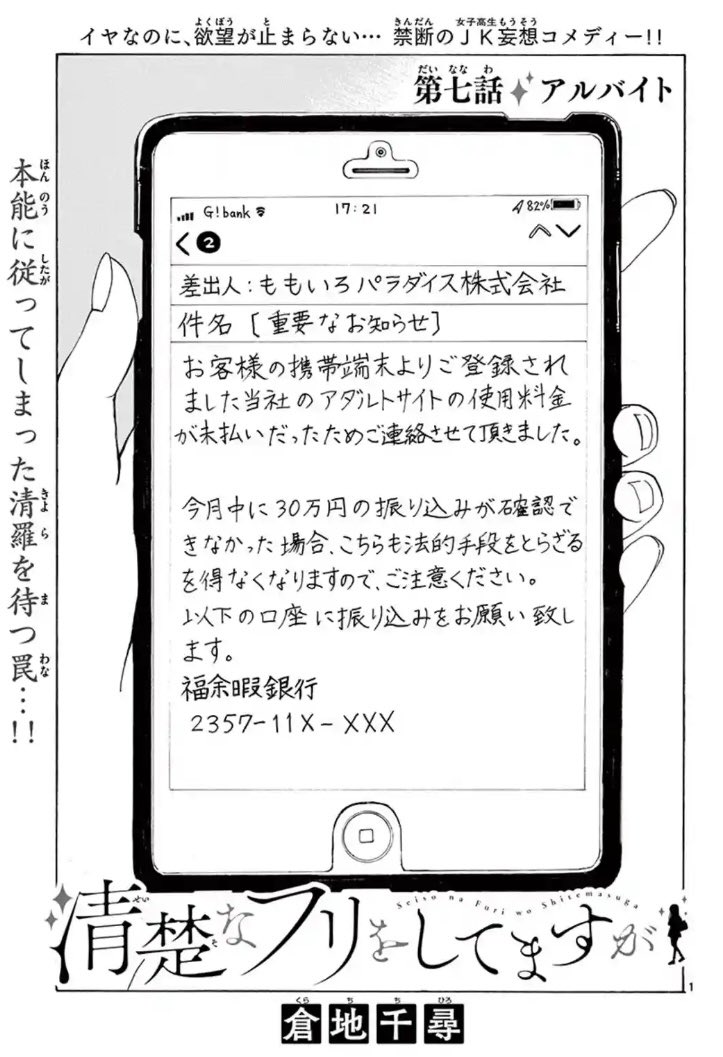 イヤなのに、欲望が止まらない… 禁断のJK妄想コメディー!!
第七話 アルバイト
本能に従ってしまった清羅を待つ罠…!!
G!bank 17:21 82%
2
差出人:ももいろパラダイス株式会社
件名 [重要なお知らせ]
お客様の携帯端末よりご登録され
ました当社のアダルトサイトの使用料金
が未払いだったためご連絡させて頂きました。
今月中に30万円の振り込みが確認で
きなかった場合、こちらも法的手段をとらざる
を得なくなりますので、ご注意ください。
以下の口座に振り込みをお願い致し
ます。
福余暇銀行
2357-11X-XXX
Seiso na Furi wo Shitemasuga
清楚なフリをしてますが
1
倉地千尋